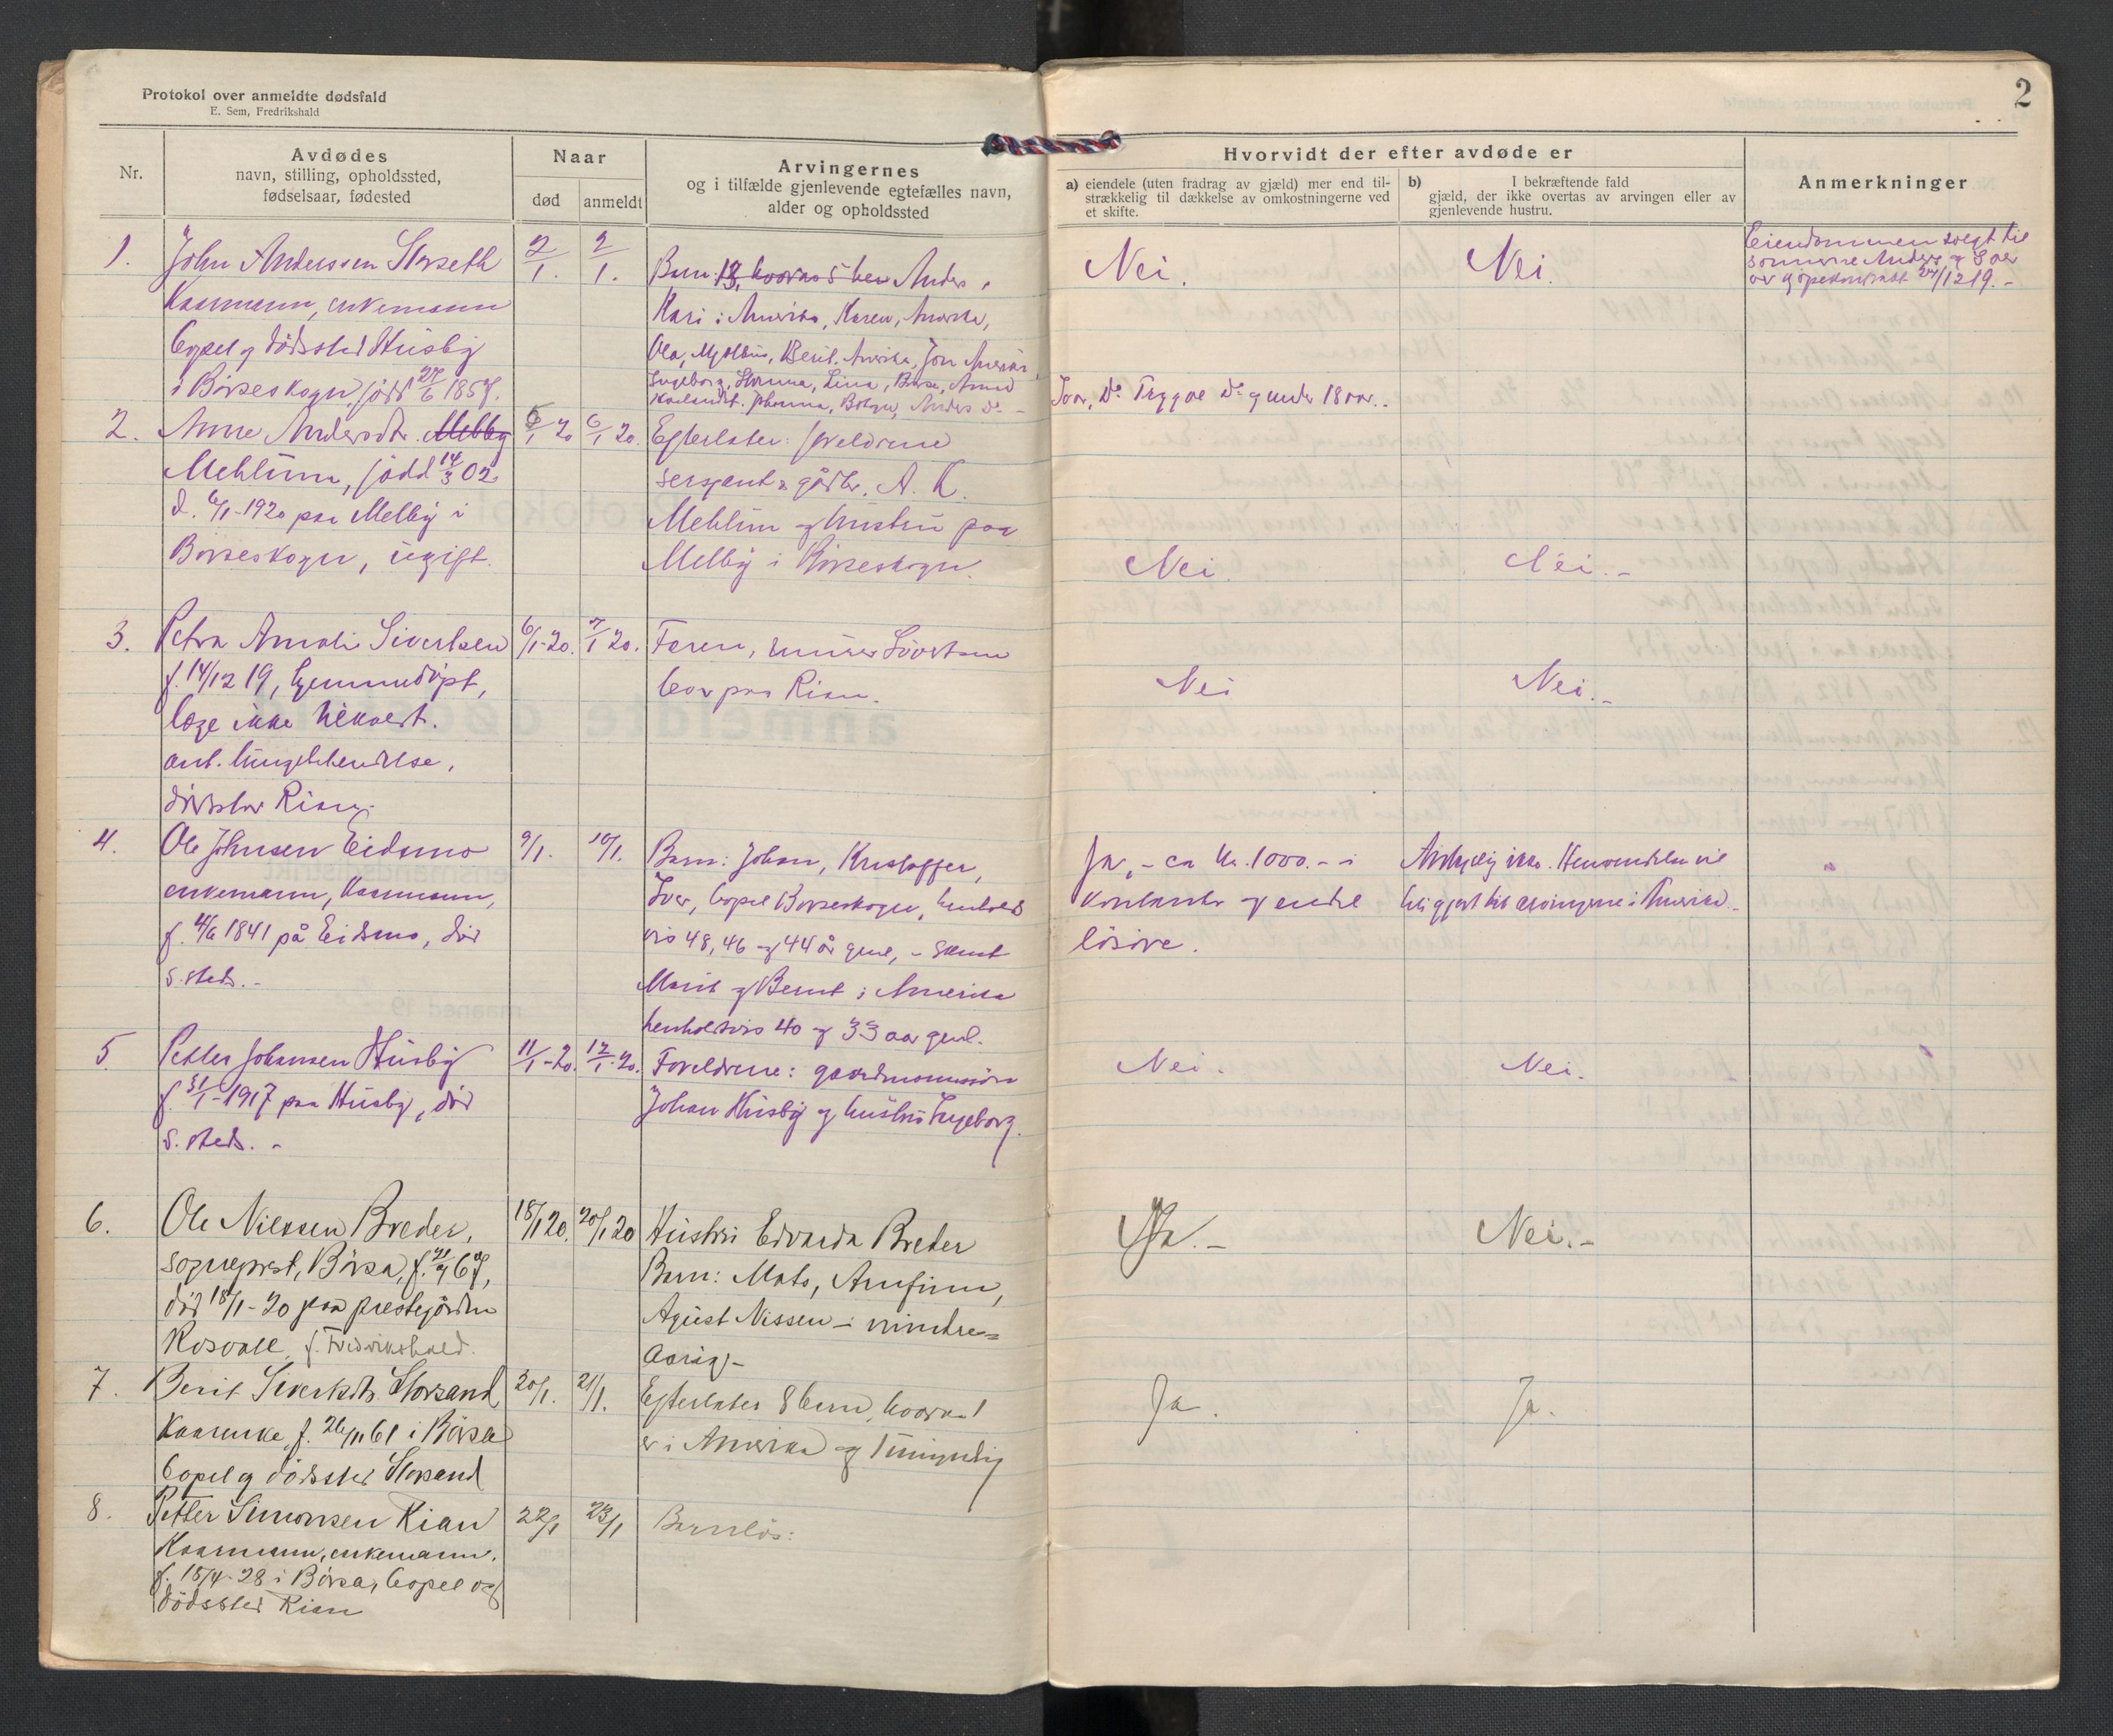 Protokol over anmeldte dødsfald
E. Sem, Fredrikshald
2
Nr.
Avdødes
navn, stilling, opholdssted,
fødselsaar, fødested
Naar
død
anmeldt
Arvingernes
og i tilfælde gjenlevende egtefælles navn,
alder og opholdssted
Hvorvidt der efter avdøde er
a) eiendele (uten fradrag av gjæld) mer end til-
strækkelig til dækkelse av omkostningerne ved
et skifte.
b) I bekræftende fald
gjæld, der ikke overtas av arvingen eller av
gjenlevende hustru.
Anmerkninger
1.
John Anderssen Storseth
Kaarmann, enkemann
Bopel og dödssted Husby
i Börseskogn, född 27/6 1857.
2/1.
2/1.
Barn: 13, hvorav 5 Anders,
Kari i Amerika, Karen, Amerika,
Ola, Berit, Amerika, Jon Amerika
Ingeborg, Lina, Börsa,
Anders do -
Ivar, do Trygve do under 18 aar..
Nei.
Nei.
Eiendommen solgt til
sönnerne Anders og Ivar
av kjöpekontrakt 27/12 19. -
2.
Anne Andersdtr. Melby
Mehlum, född 14/3 02
d. 6/1-1920 paa Melby i
Börseskogn, ugift.
6/1 20
6/1 20.
Efterlater: foreldrene
sersjant & gårdbr. A. K.
Mehlum og hustru paa
Melby i Börseskogn.
Nei.
Nei. -
3.
Petra Amalie Sivertsen
f. 14/12 19, hjemmedöpt,
læge ikke tilkaldt.
ant. lungebetendelse,
dödsstad Rian.
6/1-20.
7/1 20.
Faren, murer Sivertsen
bor paa Rian.
Nei
Nei. -
4.
Ole Johnsen Eidsmo
enkemann, Kaarmann,
f. 4/6 1841 på Eidsmo, död
s. steds. -
9/1.
10/1.
Barn: Johan, Kristoffer,
Iver, bopel Börseskogn, henholds
vis 48, 46 og 44 år gml, - samt
Marit og Bernt i Amerika
henholdsvis 40 og 33 aar gml.
Ja, - ca kr. 1000. - i
kontanter og endel
lösöre.
ikke. Henvendelse vil
bli gjort til arvingerne i Amerika. -
5.
Petter Johansen Husby
f. 31/1-1917 paa Husby, död
s. steds. -
11/1-20.
12/1-20.
Foreldrene: gaardmann
Johan Husby og hustru Ingeborg.
Nei.
Nei.
6.
Ole Nilssen Breder,
sogneprest, Börsa, f. 67,
död 18/1-20 paa prestegården
Rosvall, f. Fredrikshald.
18/1 20.
20/1 20
Hustru Edvarda Breder
Barn: Mats, Arnfinn,
August Nissen - mindre=
aarig -
Ja. -
Nei. -
7.
Berit Sivertsdtr. Storsand
Kaarenke, f. 26/11 61 i Börsa
bopel og dödssted Storsand
20/1.
21/1.
Efterlater 8 barn, hvorav 1
er i Amerika og 1 umyndig
Ja.
Ja.
8.
Petter Simonsen Rian
Kaarmann, enkemann.
f. 15/4-28 i Börsa, bopel og
dödssted Rian
22/1
23/1
Barnlös: